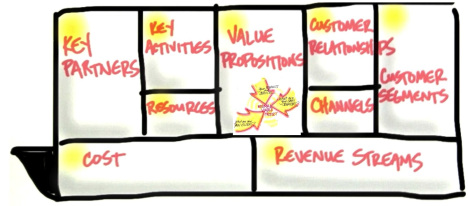 KEY
PARTNERS
KEY
ACTIVITIES
RESOURCES
VALUE
PROPOSITIONS
CUSTOMER
RELATIONSHIPS
CHANNELS
CUSTOMER
SEGMENTS
COST
REVENUE STREAMS